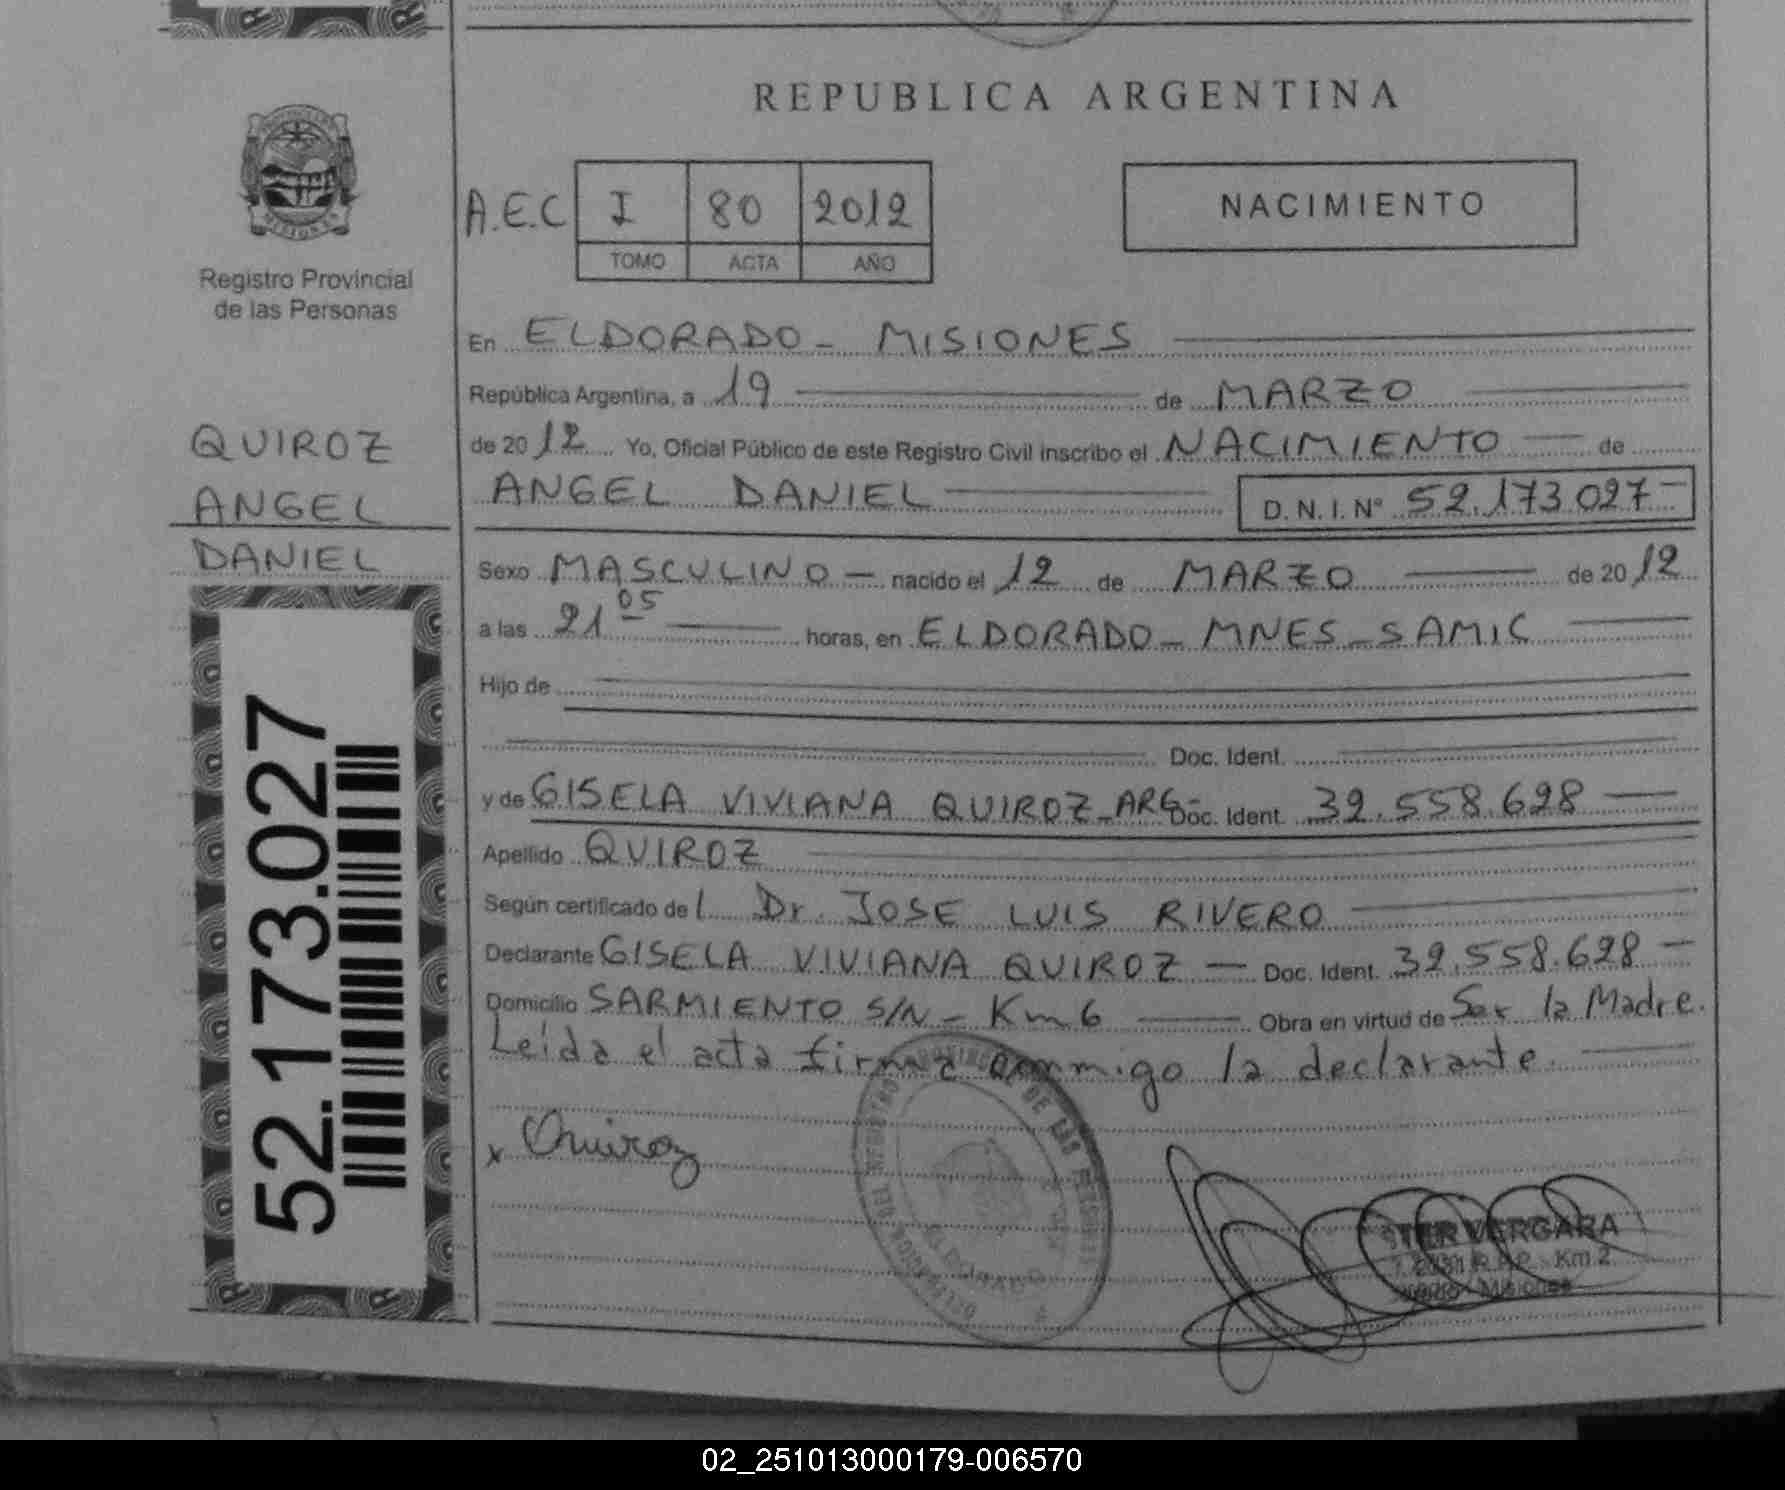 REPUBLICA ARGENTINA
A.E.C I 80 2012
TOMO ACTA AÑO
NACIMIENTO
Registro Provincial
de las Personas
QUIROZ
ANGEL
DANIEL
52.173.027
En ELDORADO - MISIONES
República Argentina, a 19 de MARZO
de 2012 Yo, Oficial Público de este Registro Civil inscribo el NACIMIENTO de
ANGEL DANIEL D.N.I. Nº 52.173.027
Sexo MASCULINO - nacido el 12 de MARZO de 2012
a las 21 05 horas, en ELDORADO - MNES - SAMIC
Hijo de
Doc. Ident.
y de GISELA VIVIANA QUIROZ - ARG- Doc. Ident. 39.558.698
Apellido QUIROZ
Según certificado del Dr. JOSE LUIS RIVERO
Declarante GISELA VIVIANA QUIROZ - Doc. Ident. 39.558.698 -
Domicilio SARMIENTO S/N - Km 6 Obra en virtud de Ser la Madre.
Leída el acta firma conmigo la declarante.
x Quiroz
DELEGACION DEL REGISTRO PROVINCIAL DE LAS PERSONAS
ELDORADO
VERGARA
Km 2
Misiones
02_251013000179-006570